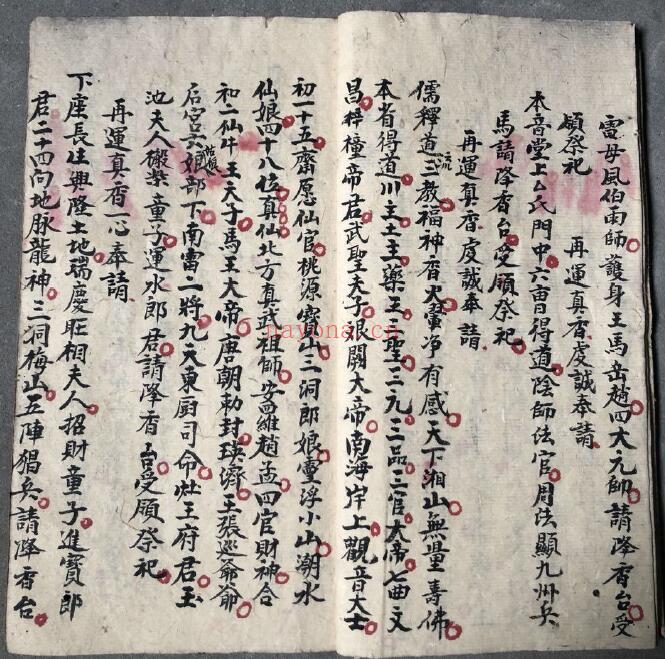 雷母風伯雨師護身王馬岳趙四大元帥請降香台受
領祭祀 再運真香虔誠奉請
本音堂上厶氏門中六曹得道陰師法官周法顯九州兵
馬請降香台受領祭祀
再運真香虔誠奉請
儒釋道三流教福神香火靈净有感天下湘山無量壽佛
本省得道川主土主藥王三聖三元三品三官大帝七曲文
昌梓橦帝君武聖夫子銀闕大帝南海岸上觀音大士
初一十五齋愿仙官桃源寶山二洞郎娘靈浮小山潮水
仙娘四十八位真仙北方真武祖師安羅趙孟四官財神合
和二仙牛王天子馬王大帝唐朝勅封瑛濟王張巡爺爺
后宫六娘部下南雷二將九天東厨司命灶王府君玉
池夫人搬柴童子運水郎君請降香台受領祭祀
再運真香一心奉請
下座長生興隆土地瑞慶旺相夫人招財童子進寶郎
君二十四向地脉龍神三洞梅山五陣猖兵請降香台
nayona.cn